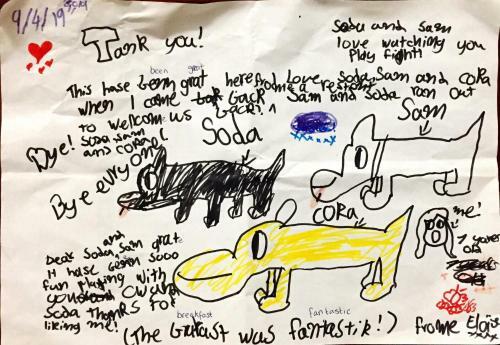 9/4/19
Tank you!
Soda and Sam
love watching you
Play fight!
been great
This hase been grat here frome
Love Soda, Sam and CORA
when I came back from a restont
Sam and Soda run out
to welcom us back!
Bye! Soda, Sam
and CORA!
Bye evryone
Soda
Sam
CORA
me!
7 years
old
Dear Soda, and Sam
it hase been sooo
fun Playing with
you
Soda thanks for
liking me!
breakfast
fantastic
(The was fantastik!)
frome Eloise